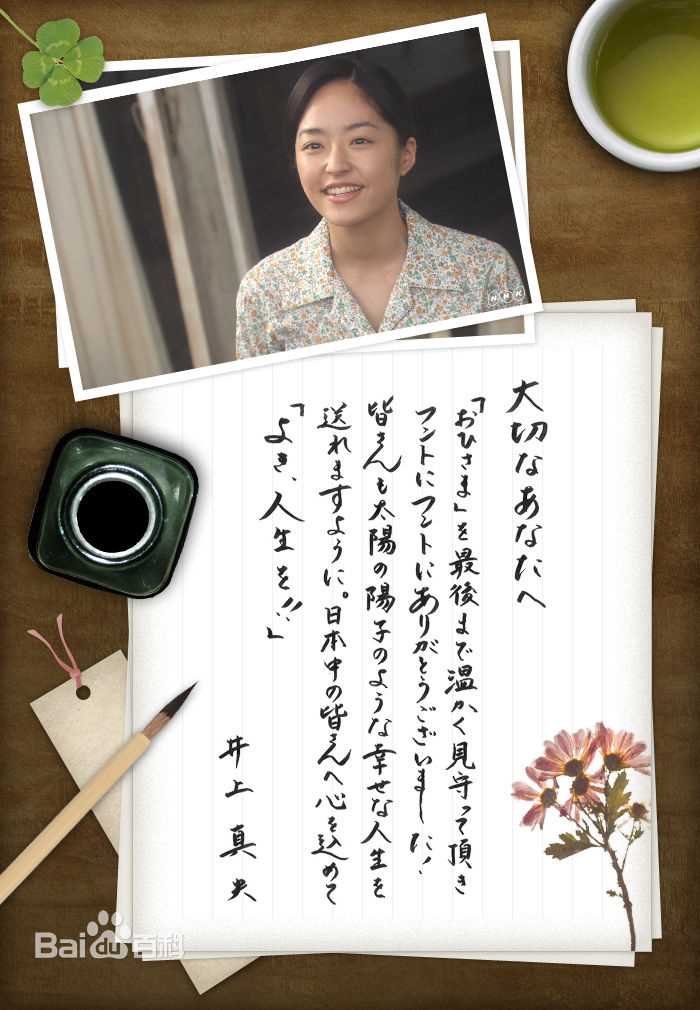 NHK
大切なあなたへ
「おひさま」を最後まで温かく見守って頂き
ホントにホントにありがとうございました!
皆さんも太陽の陽子のような幸せな人生を
送れますように。日本中の皆さんへ心を込めて
「よき、人生を!!」
井上真央
Baidu百科